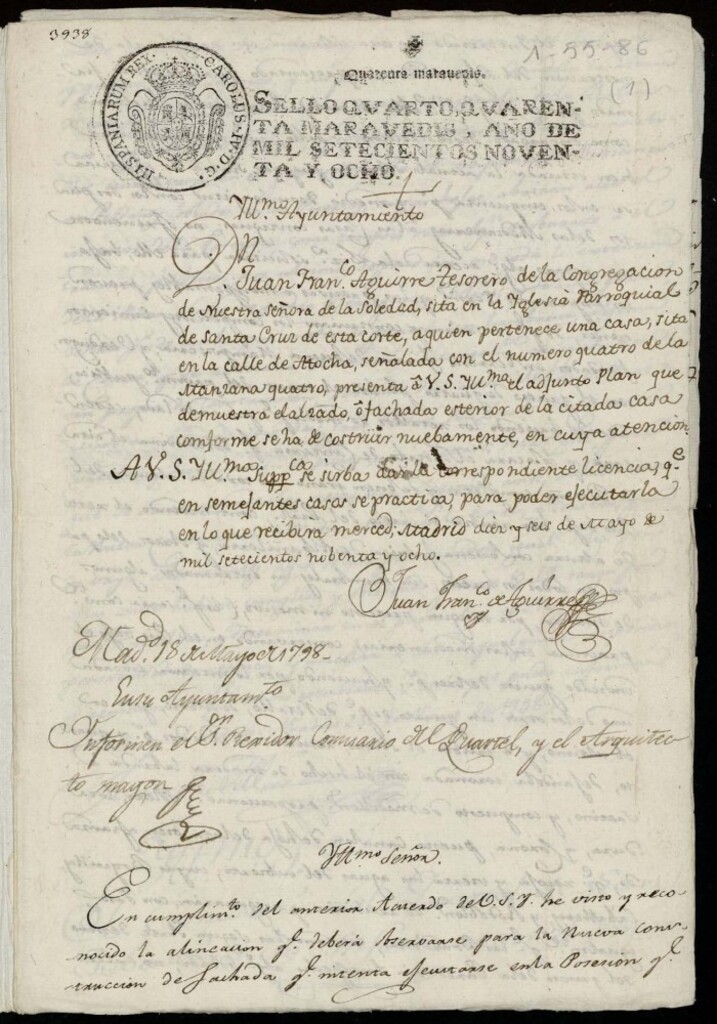 3938
1-55-86
(1)
HISPANIARUM REX. CAROLUS. IV. D. G.
Quarenta maravedis.
SELLO QVARTO, QVAREN-
TA MARAVEDIS, AÑO DE
MIL SETECIENTOS NOVEN-
TA Y OCHO.
Yll.mo Ayuntamiento
Dn
Juan Fran.co Aguirre Tesorero de la Congregacion
de Nuestra señora de la Soledad, sita en la Iglesia Parroquial
de Santa Cruz de esta corte, a quien pertenece una casa, sita
en la calle de Atocha, señalada con el numero quatro de la
Manzana quatro, presenta â V. S. Yll.ma el adjunto Plan que
demuestra el alzado, ô fachada esterior de la citada casa
conforme se ha de costrüir nuebamente, en cuya atencion
A V. S. Yll.ma Supp.ca se sirba dar la correspondiente licencia, q.e
en semejantes casos se practica, para poder ejecutarla
en lo que recibirá merced; Madrid diez y seis de Mayo de
mil setecientos nobenta y ocho.
Juan Fran.co de Aguirre
Mad.d 18 de Mayo de 1798
En su Ayuntam.to
Informen el S.or Rexidor Comisario del Quartel, y el Arquitec-
to mayor
Yll.mo Señor.
En cumplim.to del anterior Acuerdo de V. S. Y. he visto y reco-
nocido la alineacion q.e deberá observarse para la Nueva Cons-
truccion de fachada q.e intenta ejecutarse en la Posesion q.e